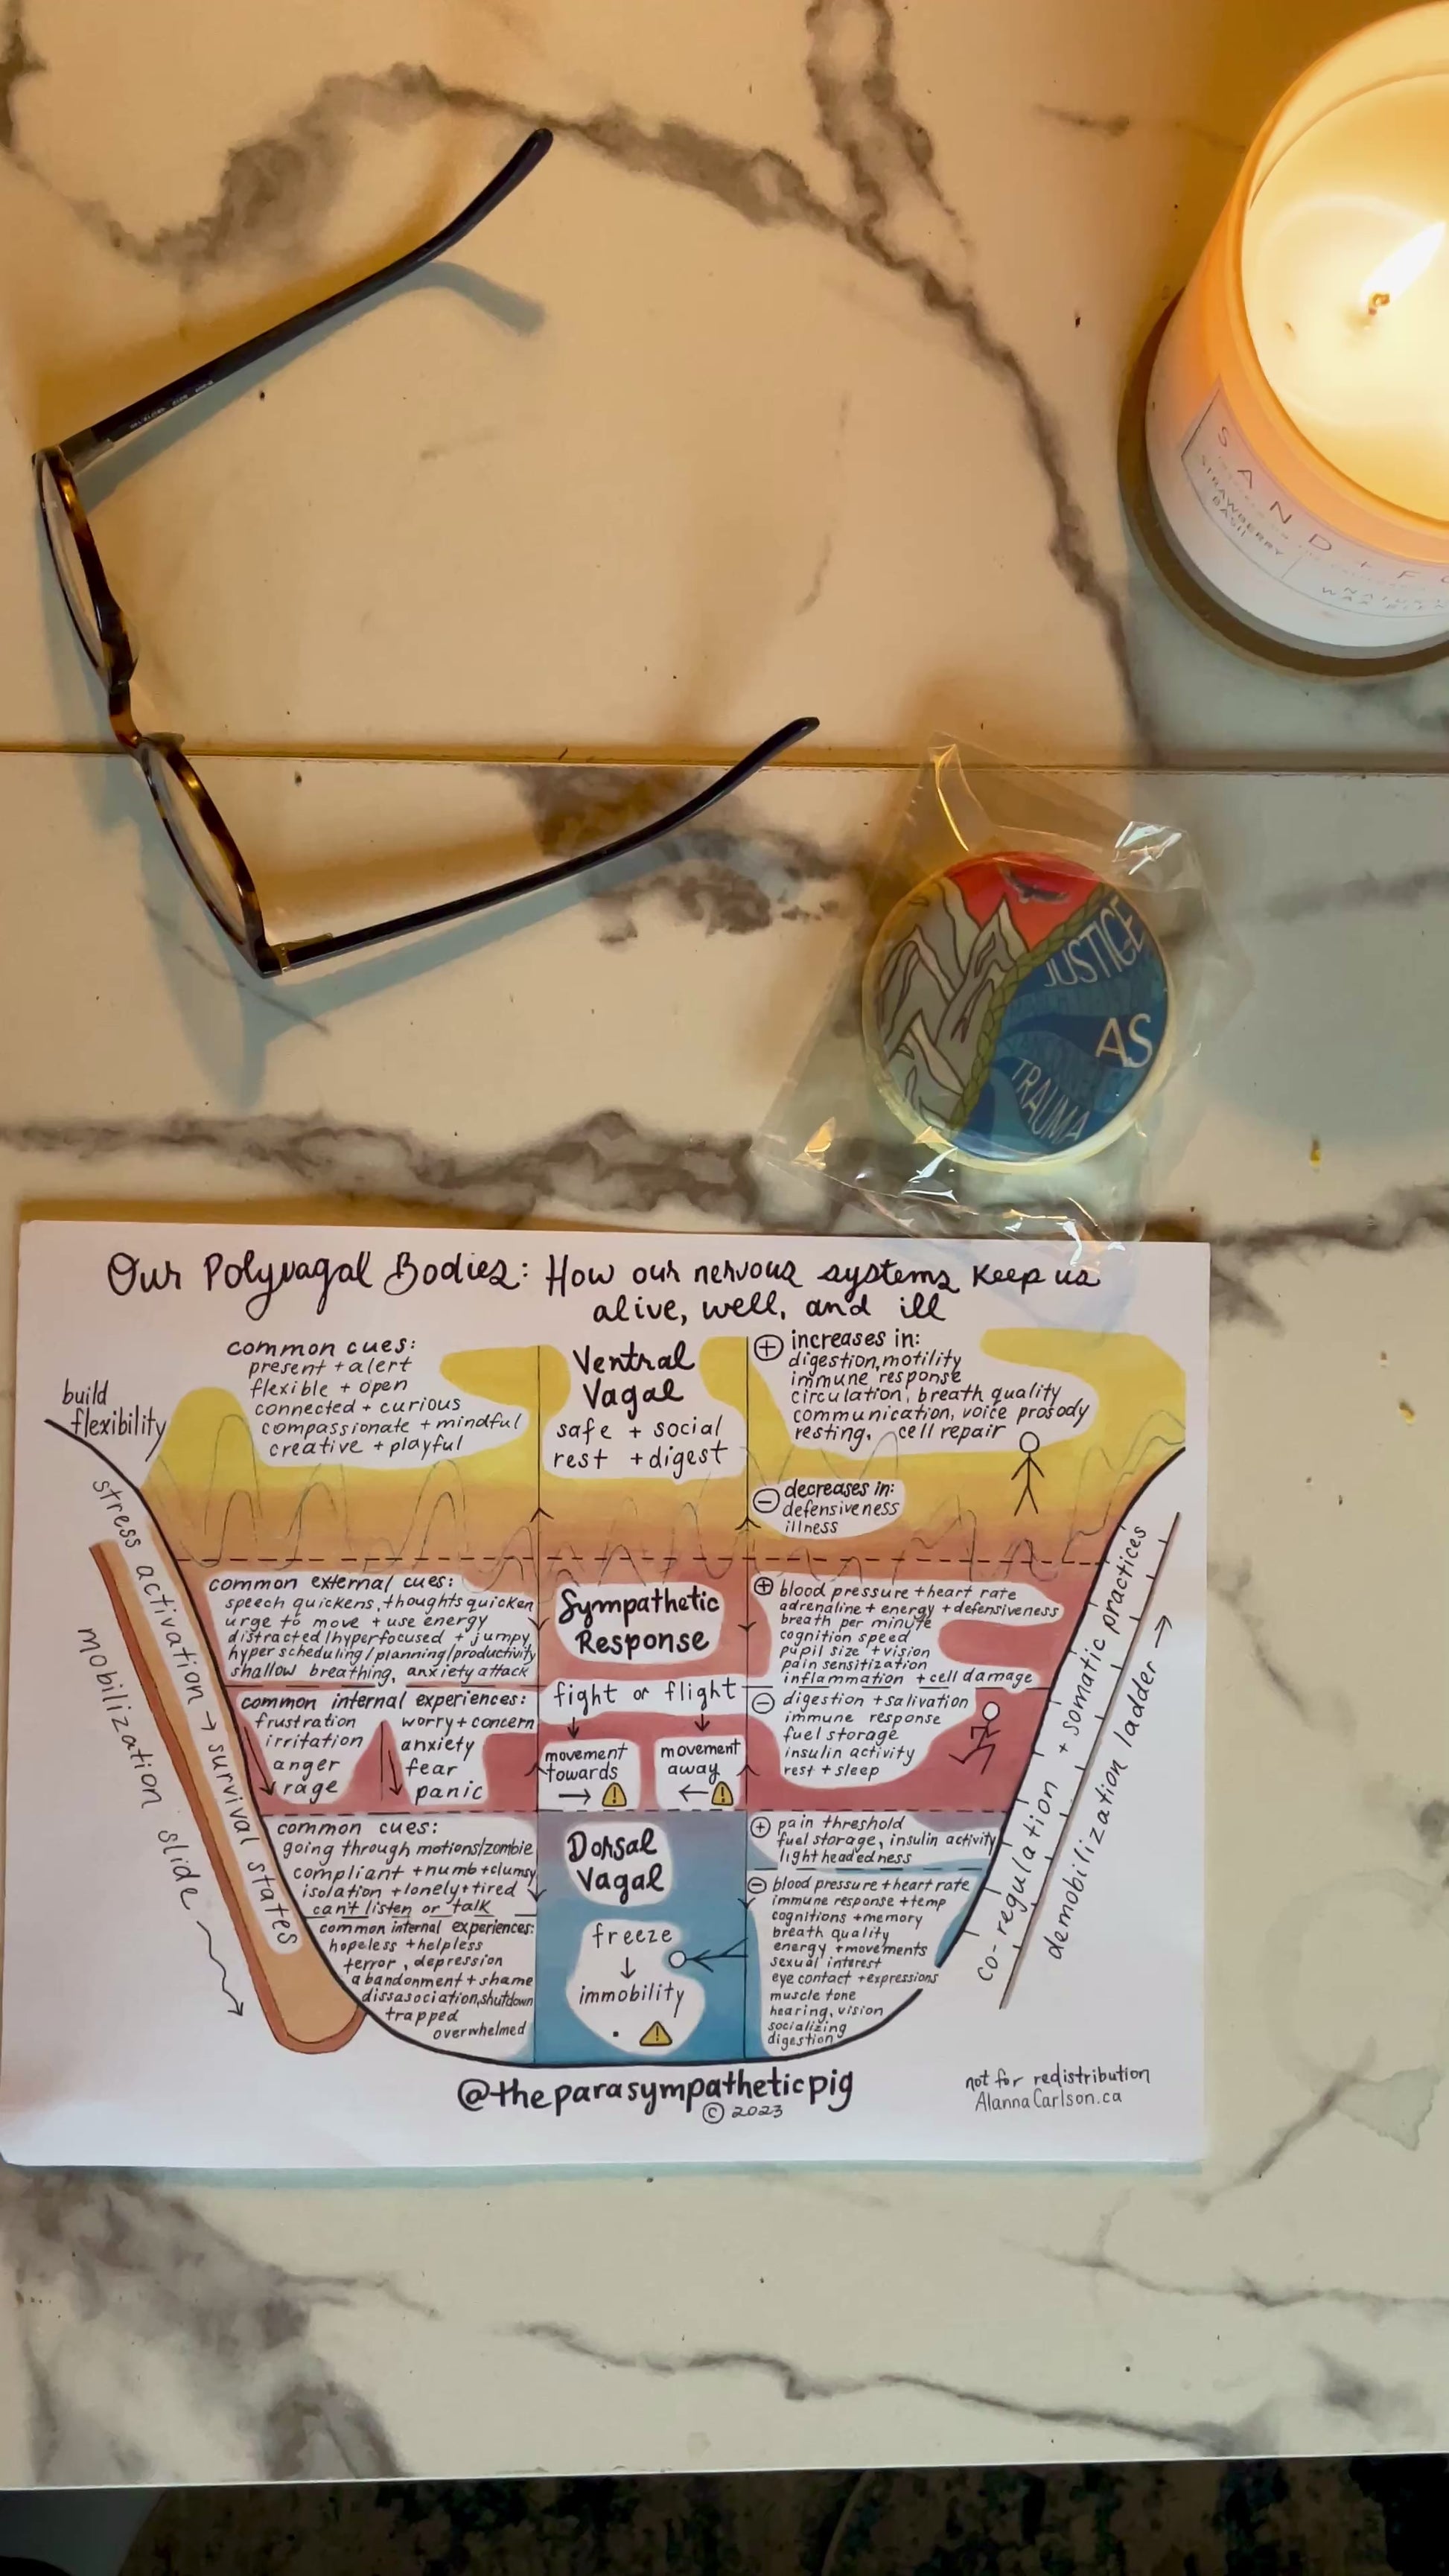 SAND + FO
STRAWBERRY
BASIL
WAX BLEN
JUSTICE
AS
TRAUMA
Our Polyvagal Bodies: How our nervous systems keep us
alive, well, and ill
build
flexibility
stress activation → survival states
mobilization slide
common cues:
present + alert
flexible + open
connected + curious
compassionate + mindful
creative + playful
Ventral
Vagal
safe + social
rest + digest
+ increases in:
digestion, motility
immune response
circulation, breath quality
communication, voice prosody
resting, cell repair
- decreases in:
defensiveness
illness
common external cues:
speech quickens, thoughts quicken
urge to move + use energy
distracted/hyperfocused + jumpy
hyper scheduling/planning/productivity
shallow breathing, anxiety attack
common internal experiences:
frustration
irritation
anger
rage
worry + concern
anxiety
fear
panic
Sympathetic
Response
fight or flight
movement
towards
→
movement
away
←
+ blood pressure + heart rate
adrenaline + energy + defensiveness
breath per minute
cognition speed
pupil size + vision
pain sensitization
inflammation + cell damage
- digestion + salivation
immune response
fuel storage
insulin activity
rest + sleep
common cues:
going through motions/zombie
compliant + numb + clumsy
isolation + lonely + tired
can't listen or talk
common internal experiences:
hopeless + helpless
terror, depression
abandonment + shame
dissasociation, shutdown
trapped
overwhelmed
Dorsal
Vagal
freeze
↓
immobility
+ pain threshold
fuel storage, insulin activity
lightheadedness
- blood pressure + heart rate
immune response + temp
cognitions + memory
breath quality
energy + movements
sexual interest
eye contact + expressions
muscle tone
hearing, vision
socializing
digestion
co-regulation + somatic practices
demobilization ladder →
@theparasympatheticpig
© 2023
not for redistribution
AlannaCarlson.ca